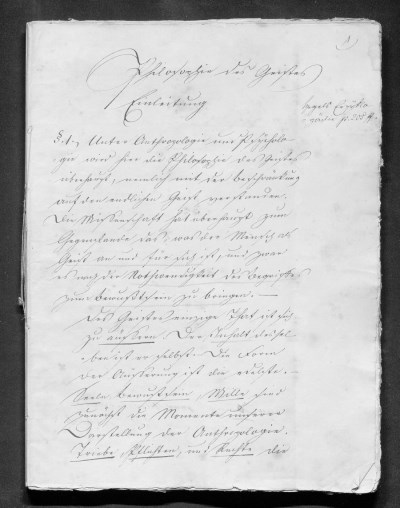 1
Philosophie des Geistes
Einleitung
Hegels Encyklo-
pädie p.
§. 1. Unter Anthropologie und Psycholo-
gie wird hier die Philosophie des Geistes
überhaupt, nemlich mit der Beschränkung
auf den endlichen Geist verstanden.
Die Wissenschaft hat überhaupt zum
Gegenstande das, was der Mensch als
Geist an und für sich ist, und zwar
es nach der Nothwendigkeit des Begriffes
zum Bewußtseyn zu bringen. —
Des Geistes einzige That ist sich
zu äussern. Der Inhalt dessel-
ben ist er selbst. Die Form
der Äusserung ist die
Seele Bewustseyn Wille sind
zunächst die Momente unserer
Darstellung der Anthropologie.
Triebe, Pflichten, und Rechte der